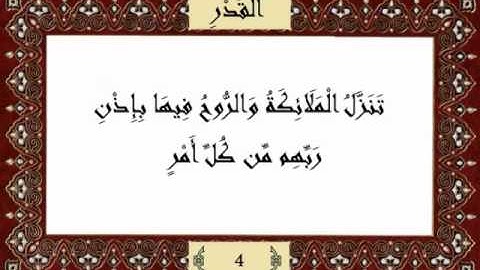 القَدْرِ
تَنَزَّلُ الْمَلَائِكَةُ وَالرُّوحُ فِيهَا بِإِذْنِ
رَبِّهِم مِّن كُلِّ أَمْرٍ
4